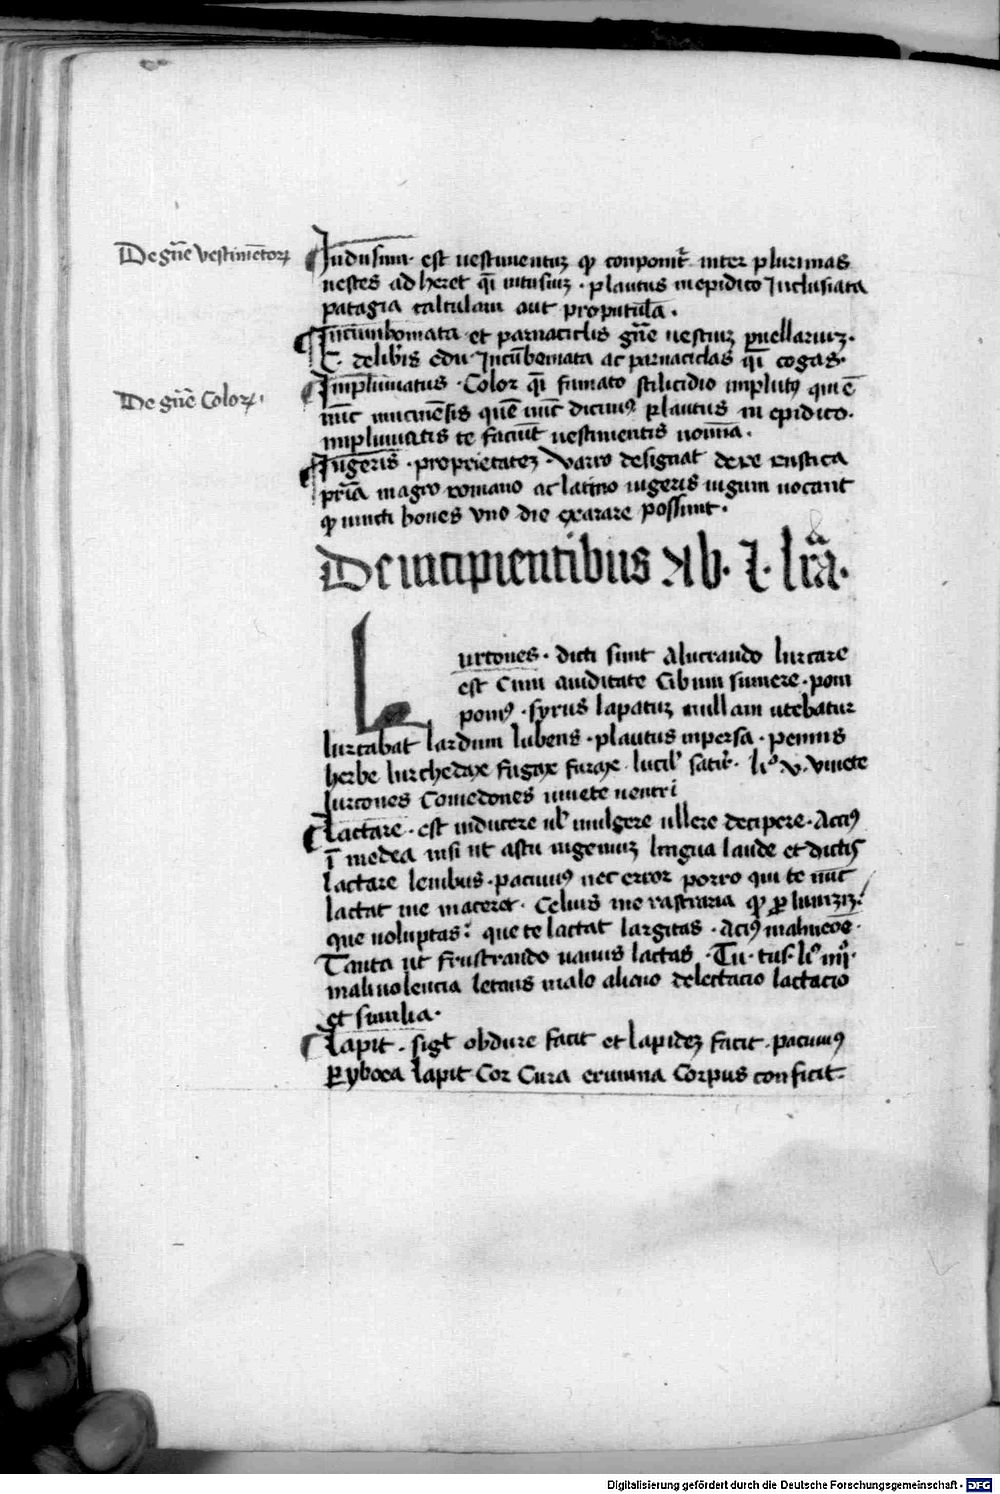 De gn̄e vestimētoꝝ
Indusiuꝫ est uestimentuꝫ ꝙ conponit᷑ inter plurimas
uestes adheret q̄i intusiuꝫ · plautus in epidico Inclusiata
patagia caltulam aut propitul̄a ·
Incumbomata et parnaciclis gn̄e uestiuꝫ puellaruꝫ ·
C · de lib̄is edu · Incūbomata ac parnaciclas q̄i cogas ·
De gn̄e Coloꝝ ·
Impluuiatus · Color q̄i fumato stilicidio implutꝰ qui ē
nūc mucinēsis quē nūc dicimꝰ plautus in epidico ·
impluuiatis te faciūt uestimentis noīna ·
Iugeris · proprietateꝫ · varro designat de re rustica
prīa in agro romano ac latino iugeris iugum uocant
ꝙ iuncti boues vno die exarare possunt ·
De incipientibus ab · l · lr̄a ·
Lurcones · dicti sunt a lucrando lurcare
est cum auiditate cibum sumere · pom
ponꝰ · syrus lapatuꝫ nullam utebatur
lurcabat lardum lubens · plautus in persa · pennis
herbe lurchedaxe fugaxe furaxe · lucil᷑ satir᷑ · liº · v · viuete
lurcones comedones uiuete uentri
Lactare · est inducere ul᷑ mulgere ullere decipere · Acciꝰ
ī medea nisi ut astu ingeniuꝫ lingua laude et dictis
lactare lenibus · pacuuiꝰ nec error porro qui te nūc
lactat me maceret · Celius me rastraria ꝙ
que uoluptas : que te lactat largitas · Acꝰ
Tanta ut frustrando uanus lactas · Tu · tus · liº iiijº ·
maliuolencia letans malo alieno delectacio lactacio
et similia ·
Lapit · sigt obdure facit et lapideꝫ facit · pacuuiꝰ
ꝑyboea lapit cor cura erumna corpus conficit ·
Digitalisierung gefördert durch die Deutsche Forschungsgemeinschaft - DFG